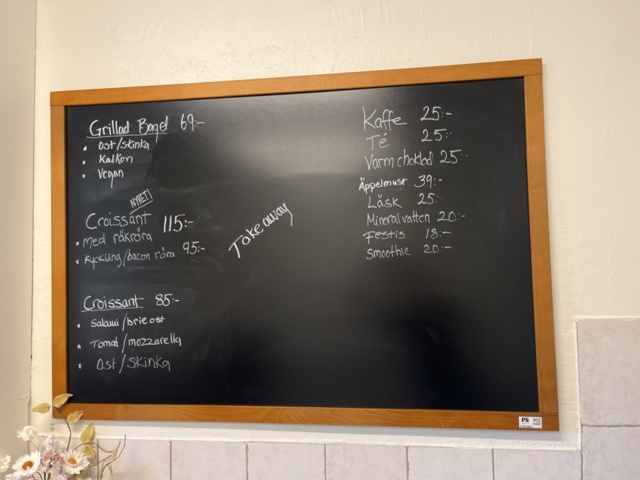 Grillad Bagel 69:-
• Ost/skinka
• Kalkon
• Vegan
NYHET
Croissant 115:-
• med räkröra
• kyckling/bacon röra 95:-
Croissant 85:-
• Salami/brie ost
• Tomat/mozzarella
• Ost/Skinka
Take away
Kaffe 25:-
Té 25:-
Varm choklad 25:-
Äppelmust 39:-
Läsk 25:-
Mineralvatten 20:-
Festis 18:-
Smoothie 20:-